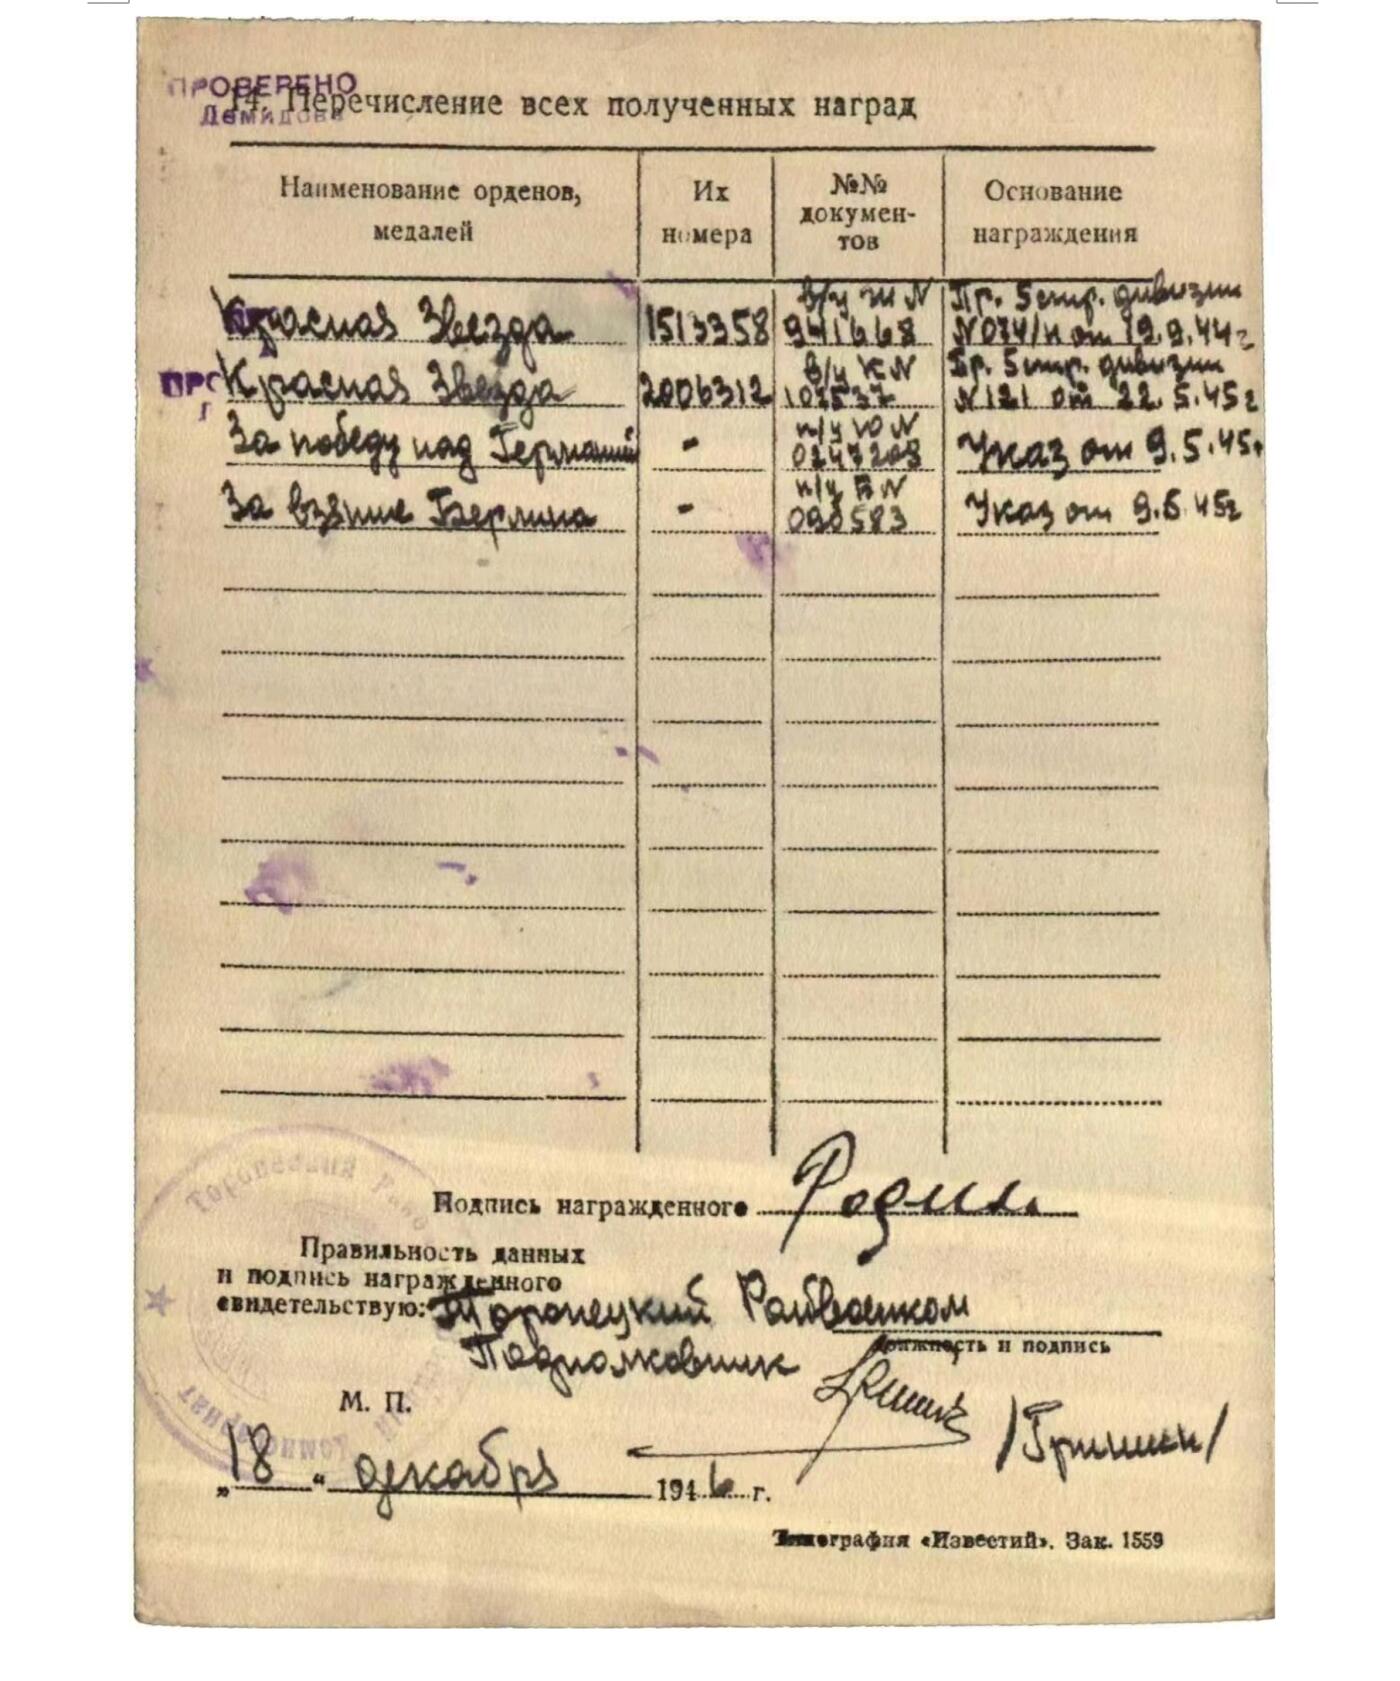 ПРОВЕРЕНО
Демидова
14. Перечисление всех полученных наград
Наименование орденов, медалей
Их номера
№№ документов
Основание награждения
Красная Звезда 1513358 в/у Ж N 941668 Пр. 5 стр. дивизии N 074/н от 19.9.44г
ПРО
Красная Звезда 2006312 в/у К N 107537 Пр. 5 стр. дивизии N 121 от 22.5.45г
За победу над Германией - п/у Ю N 0247208 Указ от 9.5.45г
За взятие Берлина - п/у В N 090583 Указ от 9.6.45г
Подпись награжденного Родин
Правильность данных
и подпись награжденного
свидетельствую: Торопецкий Райвоенком
должность и подпись
Подполковник
/Гришин/
М. П.
„18“ декабря 1946 г.
Типография «Известий». Зак. 1559